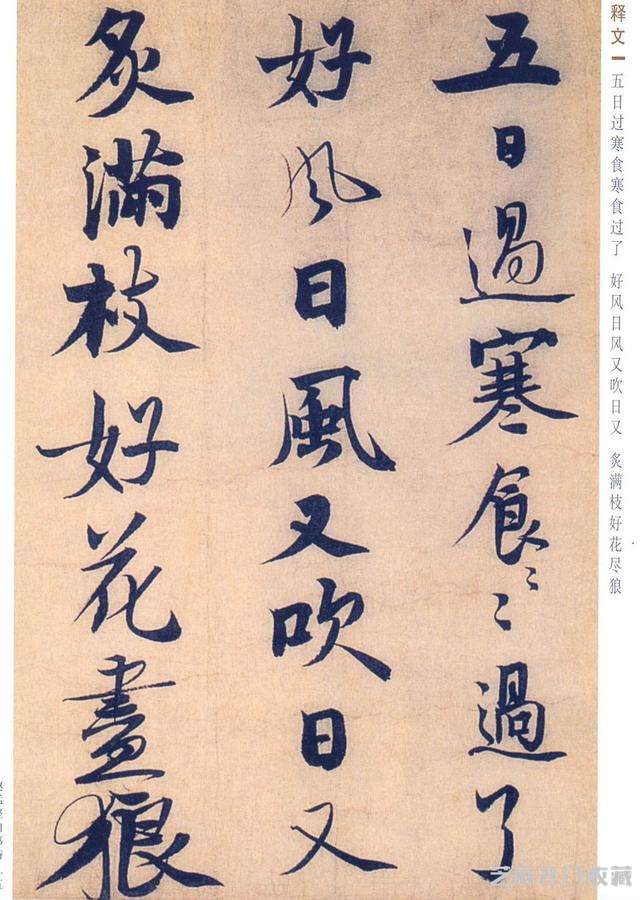 释文
五日过寒食寒食过了 好风日风又吹日又 炙满枝好花尽狼
五日過寒食〻〻過了
好風日風又吹日又
炙滿枝好花盡狼
芝麻开门收藏